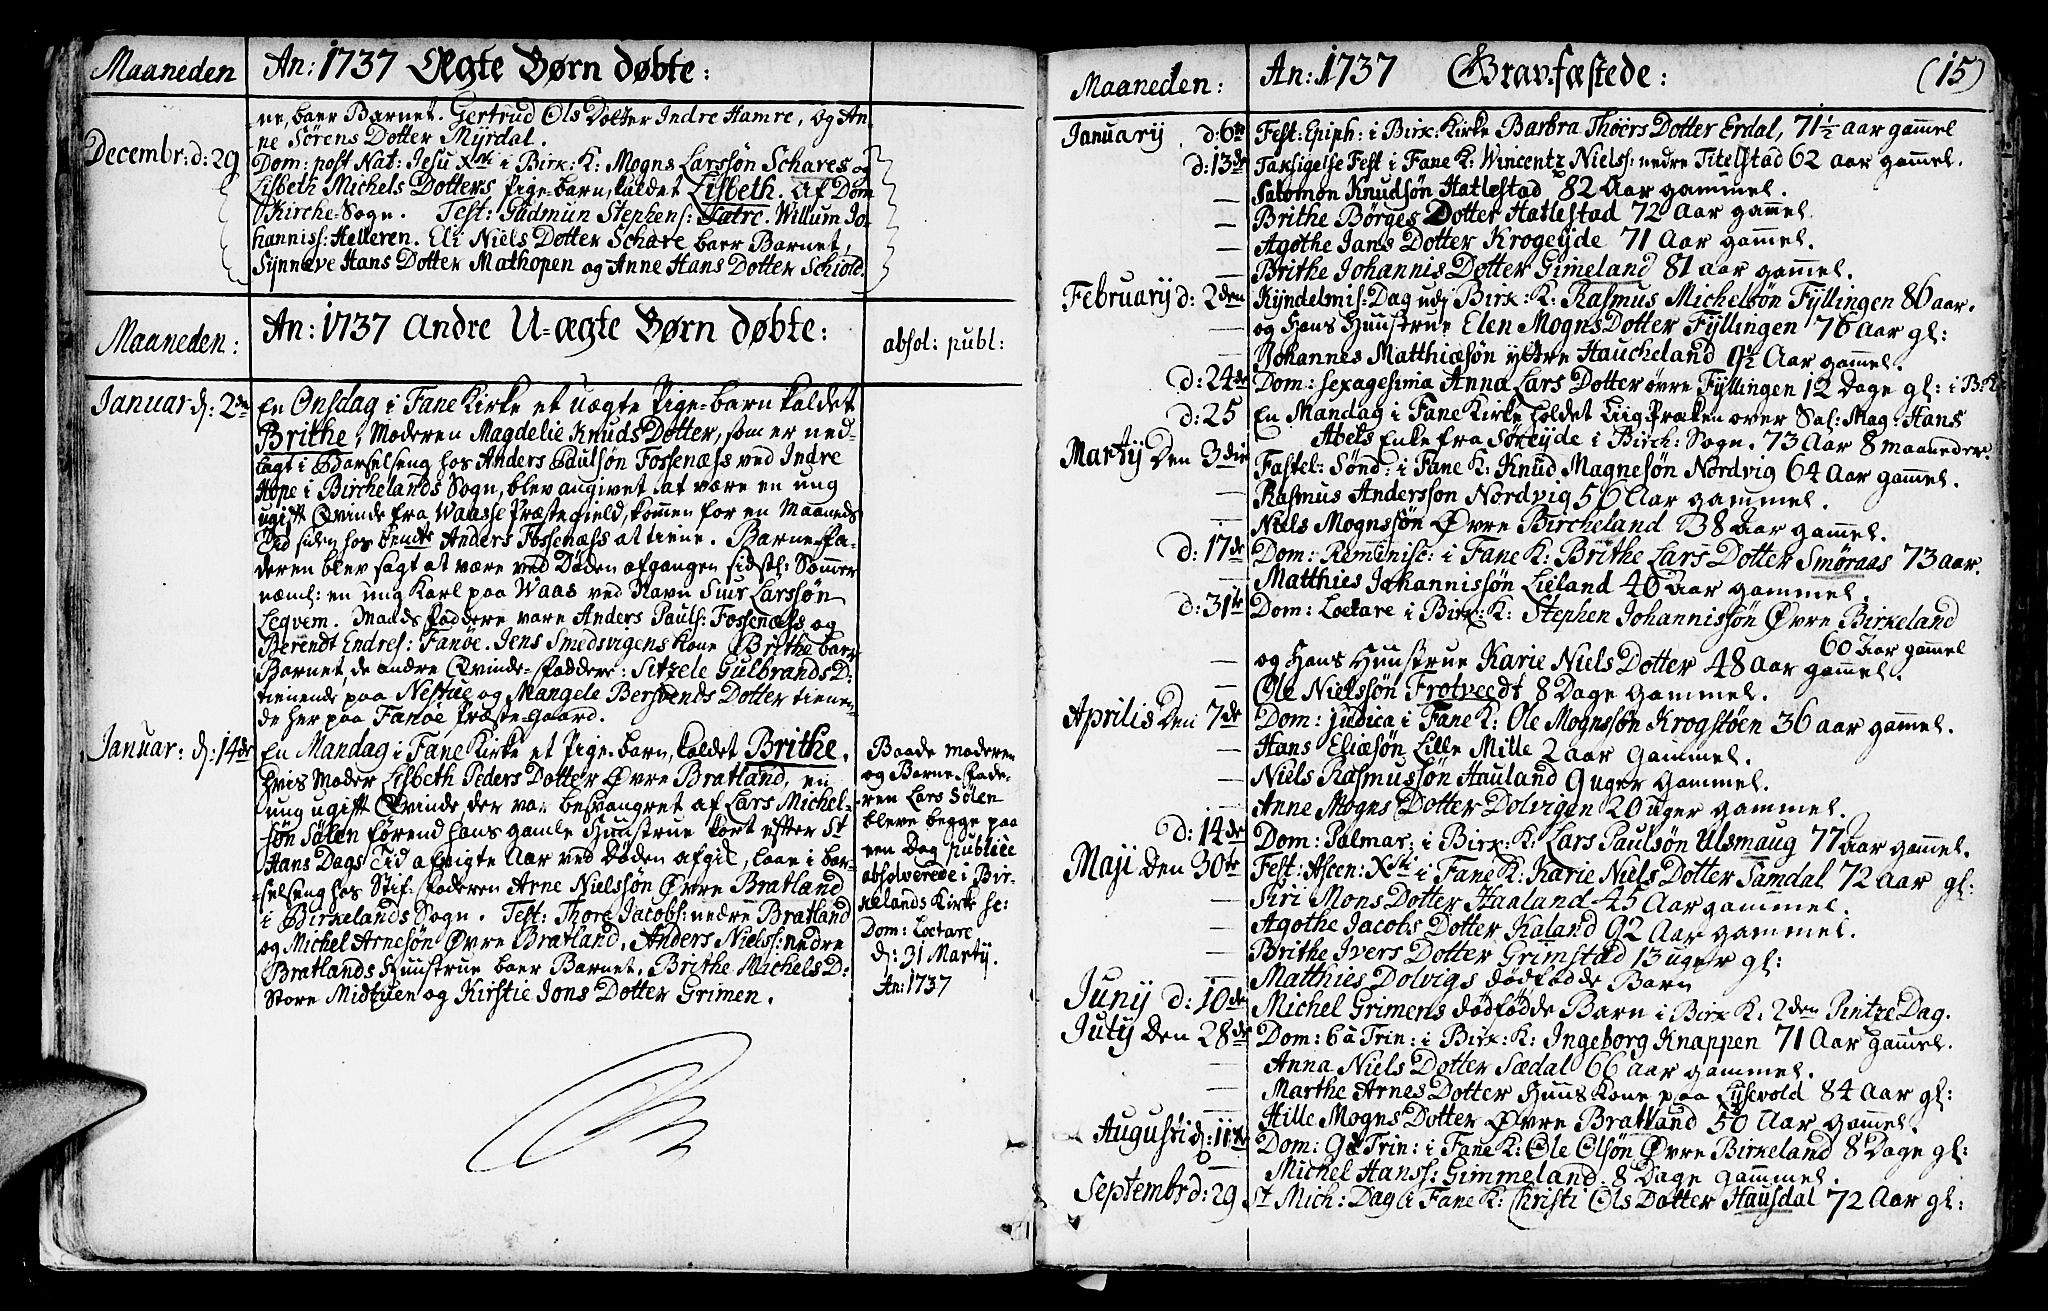 Maaneden
An: 1737 Ægte Børn døbte:
ne, baer Barnet. Gertrud Ols Dotter Indre Hamre, og An-
ne Sørens Dotter Myrdal.
Decembr: d: 29
Dom: post Nat: Jesu Xsti i Birk: K: Mogns Larssøn Schares og
Lisbeth Michels Dotters Pige-barn, kaldet Lisbeth. Af Dom
Kirche-Sogn. Test: Gudmun Stephens: Sætre. Willum Jo-
hanniss: Helleren. Eli Niels Dotter Schare baer Barnet,
Synneve Hans Dotter Mathopen og Anne Hans Dotter Schiold.
Maaneden:
An: 1737 Andre U-ægte Børn døbte:
absol: publ:
Januar d: 2den
En Onsdag i Fane Kirke et uægte Pige-barn kaldet
Brithe, Moderen Magdelie Knuds Dotter, som er ned-
lagt i Barselseng hos Anders Paulsøn Fossenæss ved Indre
Hope i Birchelands Sogn, blev angivet at være en ung
ugift Qvinde fra Waasse Præstegield, kommen for en Maaneds
Tid siden hos bemdte Anders Fossenæss at tiene. Barne-Fa-
deren blev sagt at være ved Døden afgangen sidstl: Sommer
næml: en ung Karl paa Waas ved Navn Siur Larssøn
Leqvem. Mands Faddere vare Anders Pauls: Fossenæss og
Berendt Endres: Fanøe. Jens Smedsvigens Kone Brithe bar
Barnet, de andre Qvinde-Faddere: Sitzele Gulbrands D:
tienende paa Nestue og Mangele Bersvends Dotter tienen-
de her paa Fanøe Præste-Gaard.
Januar: d: 14de
En Mandag i Fane Kirke et Pige-barn, kaldet Brithe,
hvis Moder Lisbeth Peders Dotter Øvre Bratland, en
ung ugift Qvinde, der var besvangret af Lars Michel-
søn Sølen førend hans gamle Huustrue kort efter St
Hans Dags Tid afvigte Aar ved Døden afgik, laae i bar-
selseng hos Stif-Faderen Arne Nielssøn Øvre Bratland
i Birkelands Sogn. Test: Thore Jacobs: nedre Bratland
og Michel Arnesøn Øvre Bratland, Anders Nielss: nedre
Bratlands Huustrue baer Barnet. Brithe Michels D:
Store Midtuen og Kirstie Jons Dotter Grimen.
Baade moderen
og Barne-Fade-
ren Lars Sølen
bleve begge paa
een Dag publice
absolverede i Bir-
kelands Kirke
Dom: Loetare
d: 31 Martij.
An: 1737
Maaneden:
An: 1737 Gravfæstede:
(15)
Januarij d: 6te Fest: Epiph: i Birk: Kirke Barbra Thoers Dotter Erdal, 71½ aar gammel
d: 13de Taksigelse Fest i Fane K: Wincentz Nielss: nedre Titelstad 62 aar gammel.
Salomon Knudsøn Hatlestad 82 Aar gammel.
— Brithe Børges Dotter Hatlestad 72 Aar gammel
— Agothe Jans Dotter Krogeijde 71 Aar gammel.
— Brithe Johannis Dotter Gimeland 81 aar gammel.
Februarij d: 2den Kyndelmis-Dag udj Birk: K: Rasmus Michelsøn Fyllingen 86 aar.
— og Hans Huustrue Elen Mogns Dotter Fyllingen 76 Aar gl:
— Johannes Matthiæsøn ydtre Haucheland 9½ Aar gammel.
d: 24de Dom: sexagesima Anna Lars Dotter øvre Fyllingen 12 Dage gl: i B: K:
d: 25 En Mandag i Fane Kirke holdet Liig Præken over Sal: Mag: Hans
Abels Enke fra Søreijde i Birch: Sogn. 73 Aar 8 maaneder.
Martij Den 3die Fastel: Sønd: i Fane K: Knud Magnesøn Nordvig 64 Aar gammel.
— Rasmus Andersson Nordvig 56 Aar gammel.
— Niels Mognssøn Øvre Bircheland 38 aar gammel.
d: 17de Dom: Reminisc: i Fane K: Brithe Lars Dotter Smøraas 73 aar.
— Matthies Johannissøn Lieland 46 aar gammel.
d: 31te Dom: Loetare i Birk: K: Stephen Johannissøn Øvre Birkeland
60 aar gamel
— og Hans Huustrue Karie Niels Dotter 48 aar gammel.
— Ole Nielssøn Frotveedt 8 Dage gammel.
Aprilis Den 7de Dom: judica i Fane K: Ole Mognssøn Krogstøen 36 aar gammel.
— Hans Eliæsøn Lille Mille 2 aar gammel.
— Niels Rasmussøn Hauland 9 uger gammel.
— Anne Mogns Dotter Dolvigen 20 uger gammel.
d: 14de Dom: Palmar: i Birk: K: Lars Paulsøn Ulsmaug 77 aar gammel.
Maji Den 30te Fest: Ascen: Xsti i Fane K: Karie Niels Dotter Samdal 72 aar gl:
— Siri Mons Dotter Hauland 45 Aar gammel.
— Agothe Jacobs Dotter Kaland 92 Aar gammel.
— Brithe Ivers Dotter Grimstad 13 uger gl:
— Matthies Dolvigs dødfødde Barn
Junij d: 10de Michel Grimens dødfødde Barn i Birk K: 2den Pintze Dag.
Julij Den 28de Dom: 6 a Trin: i Birk: K: Ingeborg Knappen 71 Aar gammel.
— Anna Niels Dotter Sædal 66 aar gammel.
— Marthe Arnes Dotter Huus Kone paa Lysevold 84 aar gl:
— Hille Mogns Dotter Øvre Bratland 50 Aar gammel.
Augusti d: 11te Dom: 9 Trin: i Fane K: Ole Olsøn Øvre Birkeland 8 Dage gl:
— Michel Hanss: Gimmeland 8 Dage gammel.
Septembr d: 29 St Mich: Dag i Fane K: Christi Ols Dotter Hausdal 72 Aar gl: